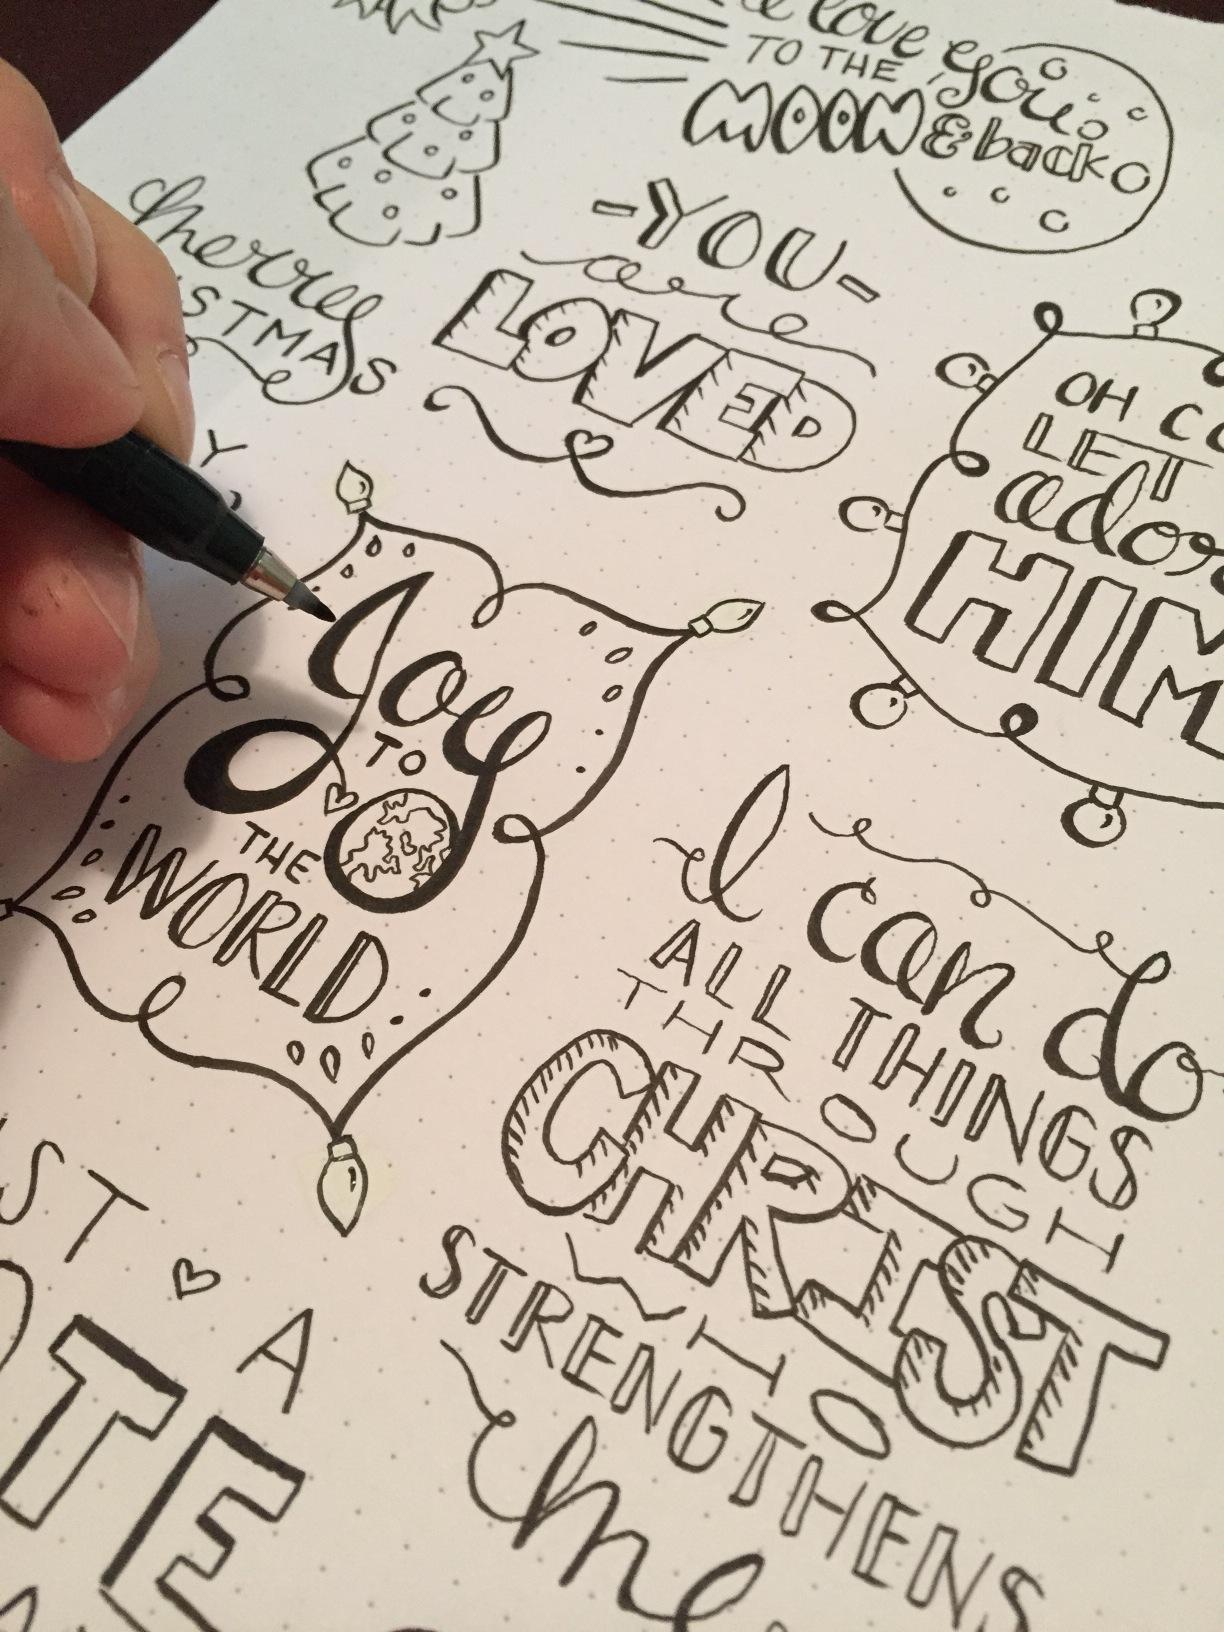 love you
TO THE
MOON & back
cherry
STMAS
-YOU-
are
LOVED
OH CO
LET
ador
HIM
Y
Joy
TO
THE
WORLD
I can do
ALL THINGS
THROUGH
CHRIST
WHO
STRENGTHENS
me
ST
A
TE